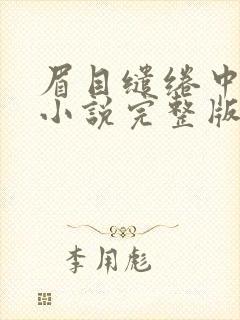 眉目缱绻中
小說完整版
李用彪